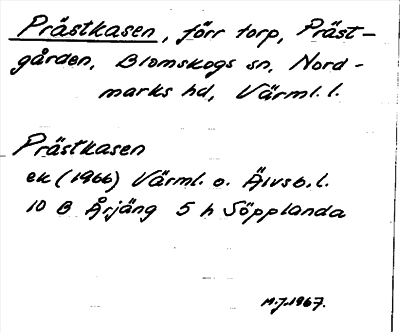 Prästkasen, förr torp, Präst-
gården, Blomskogs sn, Nord-
marks hd, Värml. l.
Prästkasen
ek (1966) Värml. o. Älvsb. l.
10 B Årjäng 5 h Söpplanda
M.J. 1967.